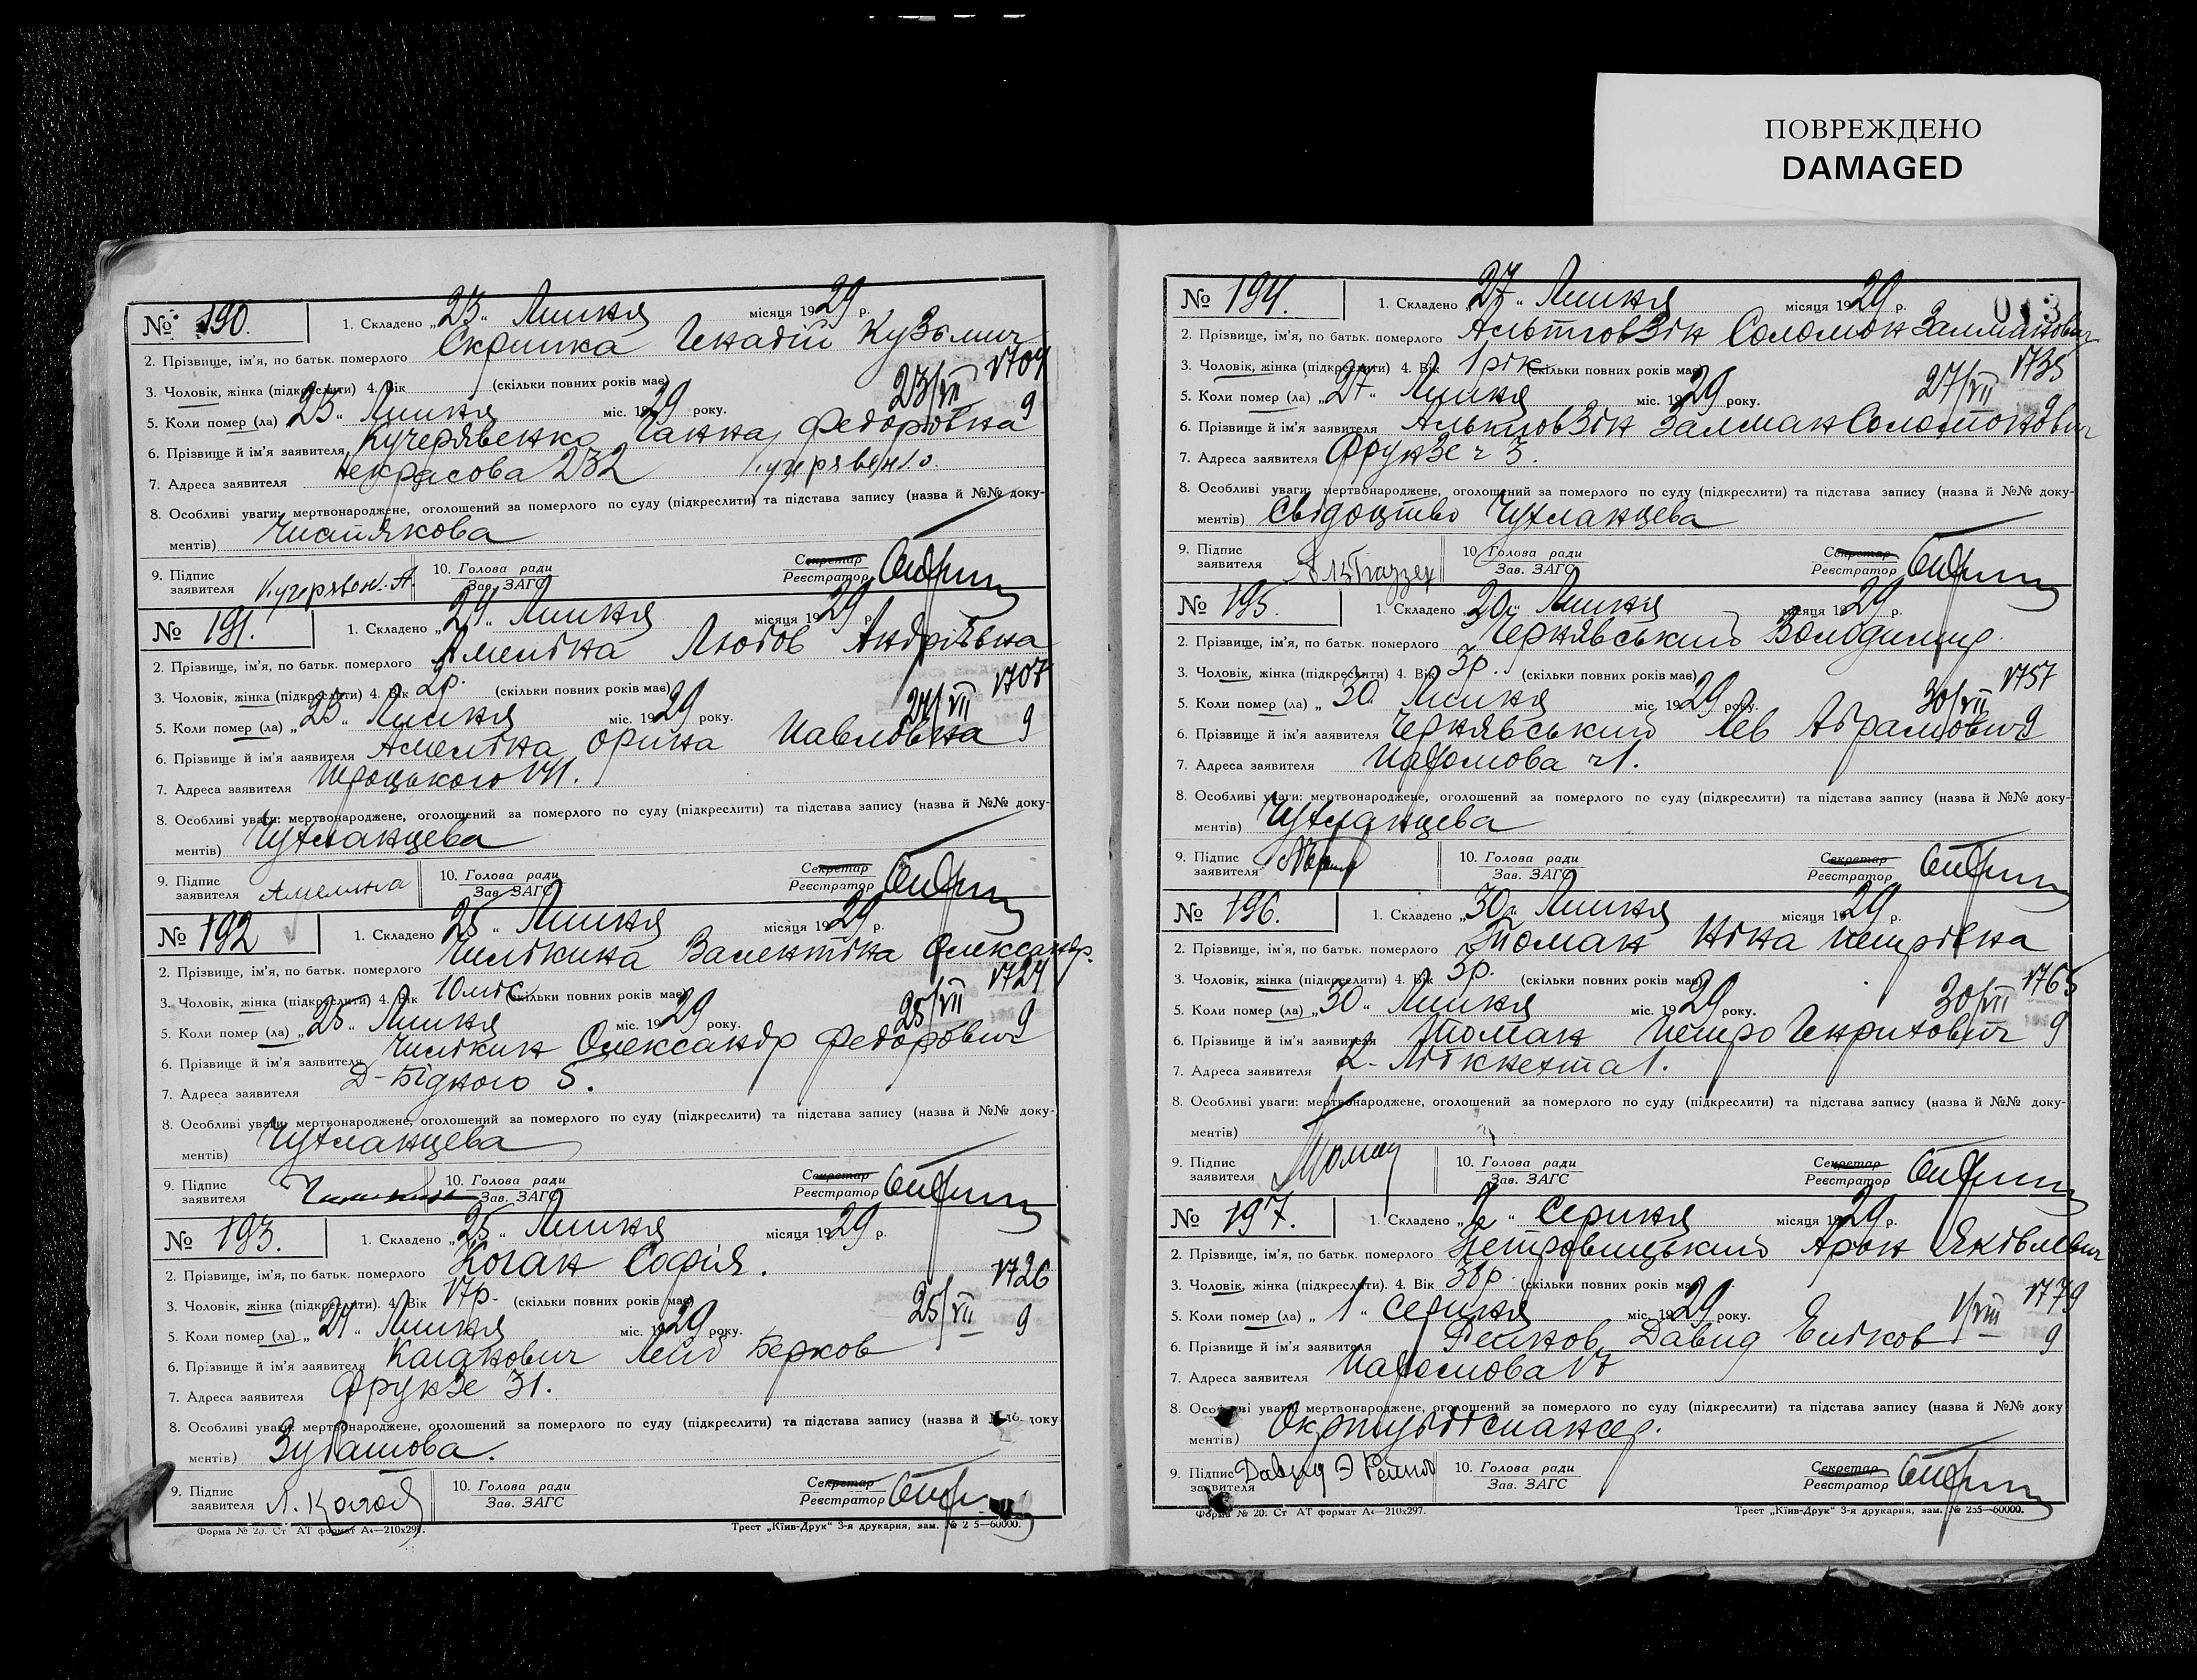 ПОВРЕЖДЕНО
DAMAGED
№ 190. 1. Складено „23“ Липня місяця 1929 р.
2. Прізвище, ім'я, по батьк. померлого Скрипка Генадій Кузьмич
3. Чоловік, жінка (підкреслити) 4. Вік (скільки повних років має) 23/VII 1704
5. Коли помер (ла) „23“ Липня міс. 1929 року. 9
6. Прізвище й ім'я заявителя Кучерявенко Ганна Федорівна
7. Адреса заявителя Некрасова 232
8. Особливі уваги: мертвонароджене, оголошений за померлого по суду (підкреслити) та підстава запису (назва й №№ доку-
ментів) Чистякова
9. Підпис заявителя Кучерявен. А. 10. Голова ради Зав. ЗАГС Секретар Реєстратор
№ 191. 1. Складено „24“ Липня місяця 1929 р.
2. Прізвище, ім'я, по батьк. померлого Амеліна Любов Андріївна
3. Чоловік, жінка (підкреслити) 4. Вік 2р. (скільки повних років має) 24/VII 1707
5. Коли помер (ла) „23“ Липня міс. 1929 року. 9
6. Прізвище й ім'я заявителя Амеліна Орина Павлівна
7. Адреса заявителя Троцького 141.
8. Особливі уваги: мертвонароджене, оголошений за померлого по суду (підкреслити) та підстава запису (назва й №№ доку-
ментів) Чутланцева
9. Підпис заявителя Амелина 10. Голова ради Зав. ЗАГС Секретар Реєстратор
№ 192 1. Складено „25“ Липня місяця 1929 р.
2. Прізвище, ім'я, по батьк. померлого Чилікина Валентіна Олександр.
3. Чоловік, жінка (підкреслити) 4. Вік 10 міс (скільки повних років має) 25/VII 1724
5. Коли помер (ла) „25“ Липня міс. 1929 року. 9
6. Прізвище й ім'я заявителя Чилікин Олександр Федорович
7. Адреса заявителя Д-Бідного 5.
8. Особливі уваги: мертвонароджене, оголошений за померлого по суду (підкреслити) та підстава запису (назва й №№ доку-
ментів) Чутланцева
9. Підпис заявителя 10. Голова ради Зав. ЗАГС Секретар Реєстратор
№ 193. 1. Складено „25“ Липня місяця 1929 р.
2. Прізвище, ім'я, по батьк. померлого Коган Софія.
3. Чоловік, жінка (підкреслити). 4. Вік 17р. (скільки повних років має) 25/VII 1726
5. Коли помер (ла) „24“ Липня міс. 1929 року. 9
6. Прізвище й ім'я заявителя Каганович Лейб Берков
7. Адреса заявителя Фрунзе 31.
8. Особливі уваги: мертвонароджене, оголошений за померлого по суду (підкреслити) та підстава запису (назва й №№ доку
ментів) Зубашова.
9. Підпис заявителя 10. Голова ради Зав. ЗАГС Секретар Реєстратор
Форма № 20. Ст АТ формат А4—210х297. Трест „Київ-Друк“ 3-я друкарня, зам. № 2 5—60000.
№ 194. 1. Складено „27“ Липня місяця 1929 р. 013
2. Прізвище, ім'я, по батьк. померлого Альтговзін Соломон Залманович
3. Чоловік, жінка (підкреслити) 4. Вік 1 рік (скільки повних років має) 27/VII 1735
5. Коли помер (ла) „27“ Липня міс. 1929 року. 9
6. Прізвище й ім'я заявителя Альтговзін Залман Соломонович
7. Адреса заявителя Фрунзе ч 5.
8. Особливі уваги: мертвонароджене, оголошений за померлого по суду (підкреслити) та підстава запису (назва й №№ доку-
ментів) Свідоцтво Чутланцева
9. Підпис заявителя 10. Голова ради Зав. ЗАГС Секретар Реєстратор
№ 195. 1. Складено „30“ Липня місяця 1929 р.
2. Прізвище, ім'я, по батьк. померлого Чернявський Володимир.
3. Чоловік, жінка (підкреслити) 4. Вік 3р. (скільки повних років має) 30/VII 1757
5. Коли помер (ла) „30“ Липня міс. 1929 року. 9
6. Прізвище й ім'я заявителя Чернявський Лев Абрамович
7. Адреса заявителя ч1.
8. Особливі уваги: мертвонароджене, оголошений за померлого по суду (підкреслити) та підстава запису (назва й №№ доку-
ментів) Чутланцева
9. Підпис заявителя 10. Голова ради Зав. ЗАГС Секретар Реєстратор
№ 196. 1. Складено „30“ Липня місяця 1929 р.
2. Прізвище, ім'я, по батьк. померлого Томан Ніна Петрівна
3. Чоловік, жінка (підкреслити) 4. Вік 3р. (скільки повних років має) 30/VII 1765
5. Коли помер (ла) „30“ Липня міс. 1929 року. 9
6. Прізвище й ім'я заявителя Томан Петро Генрихович
7. Адреса заявителя К-Лібкнехта 1.
8. Особливі уваги: мертвонароджене, оголошений за померлого по суду (підкреслити) та підстава запису (назва й №№ доку-
ментів)
9. Підпис заявителя Томан 10. Голова ради Зав. ЗАГС Секретар Реєстратор
№ 197. 1. Складено „2“ Серпня місяця 1929 р.
2. Прізвище, ім'я, по батьк. померлого Петровицький Арон Яківлевич
3. Чоловік, жінка (підкреслити). 4. Вік (скільки повних років має) 1/VIII 1779
5. Коли помер (ла) „1“ Серпня міс. 1929 року. 9
6. Прізвище й ім'я заявителя Рейнов Давид Еліков
7. Адреса заявителя 17
8. Особливі уваги: мертвонароджене, оголошений за померлого по суду (підкреслити) та підстава запису (назва й №№ доку
ментів) Окртубдіспансер.
9. Підпис заявителя Давид Э Рейнов 10. Голова ради Зав. ЗАГС Секретар Реєстратор
Форма № 20. Ст АТ формат А4—210х297. Трест „Київ-Друк“ 3-я друкарня, зам. № 255—60000.